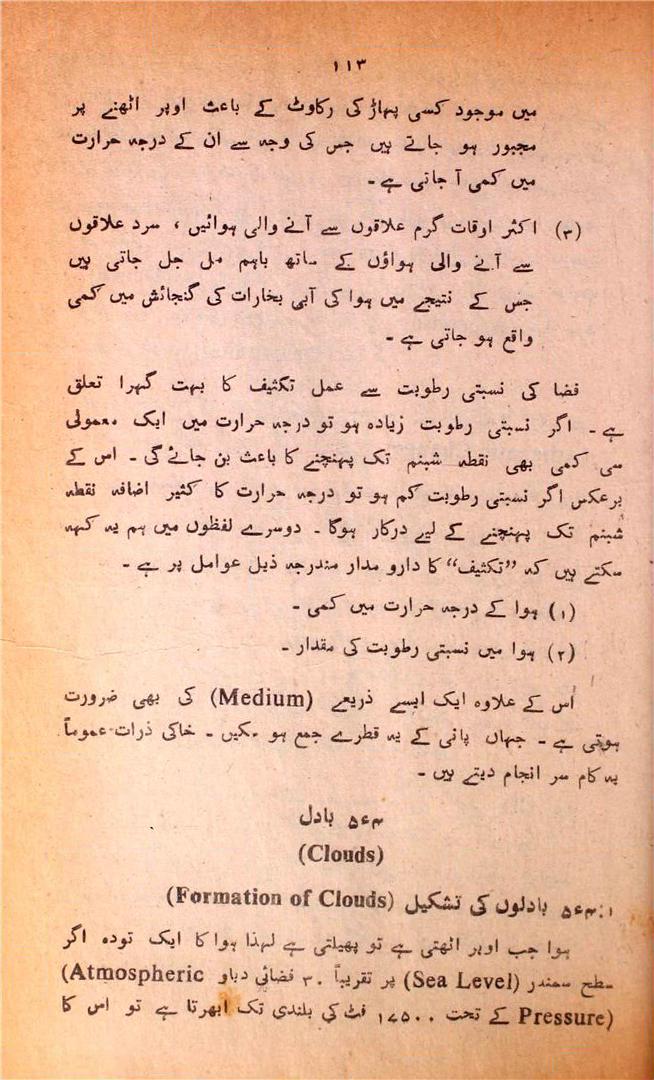 ۱۱۳
میں موجود کسی پہاڑ کی رکاوٹ کے باعث اوپر اٹھنے پر
مجبور ہو جاتے ہیں جس کی وجہ سے ان کے درجہ حرارت
میں کمی آ جاتی ہے۔
(۳) اکثر اوقات گرم علاقوں سے آنے والی ہوائیں ، سرد علاقوں
سے آنے والی ہواؤں کے ساتھ باہم مل جل جاتی ہیں
جس کے نتیجے میں ہوا کی آبی بخارات کی گنجائش میں کمی
واقع ہو جاتی ہے۔
فضا کی نسبتی رطوبت سے عمل تکثیف کا بہت گہرا تعلق
ہے۔ اگر نسبتی رطوبت زیادہ ہو تو درجہ حرارت میں ایک معمولی
سی کمی بھی نقطہ شبنم تک پہنچنے کا باعث بن جائے گی۔ اس کے
برعکس اگر نسبتی رطوبت کم ہو تو درجہ حرارت کا کثیر اضافہ نقطہ
شبنم تک پہنچنے کے لیے درکار ہوگا۔ دوسرے لفظوں میں ہم یہ کہہ
سکتے ہیں کہ ”تکثیف“ کا دارو مدار مندرجہ ذیل عوامل پر ہے۔
(۱) ہوا کے درجہ حرارت میں کمی۔
(۲) ہوا میں نسبتی رطوبت کی مقدار۔
اُس کے علاوہ ایک ایسے ذریعے (Medium) کی بھی ضرورت
ہوتی ہے۔ جہاں پانی کے یہ قطرے جمع ہو سکیں۔ خاکی ذرات عموماً
یہ کام سر انجام دیتے ہیں۔
۵ء۴ بادل
(Clouds)
۵ء۴:۱ بادلوں کی تشکیل (Formation of Clouds)
ہوا جب اوپر اٹھتی ہے تو پھیلتی ہے لہذا ہوا کا ایک تودہ اگر
سطح سمندر (Sea Level) پر تقریباً ۳۰ فضائی دباو (Atmospheric
Pressure) کے تحت ۱۷۵۰۰ فٹ کی بلندی تک ابھرتا ہے تو اس کا